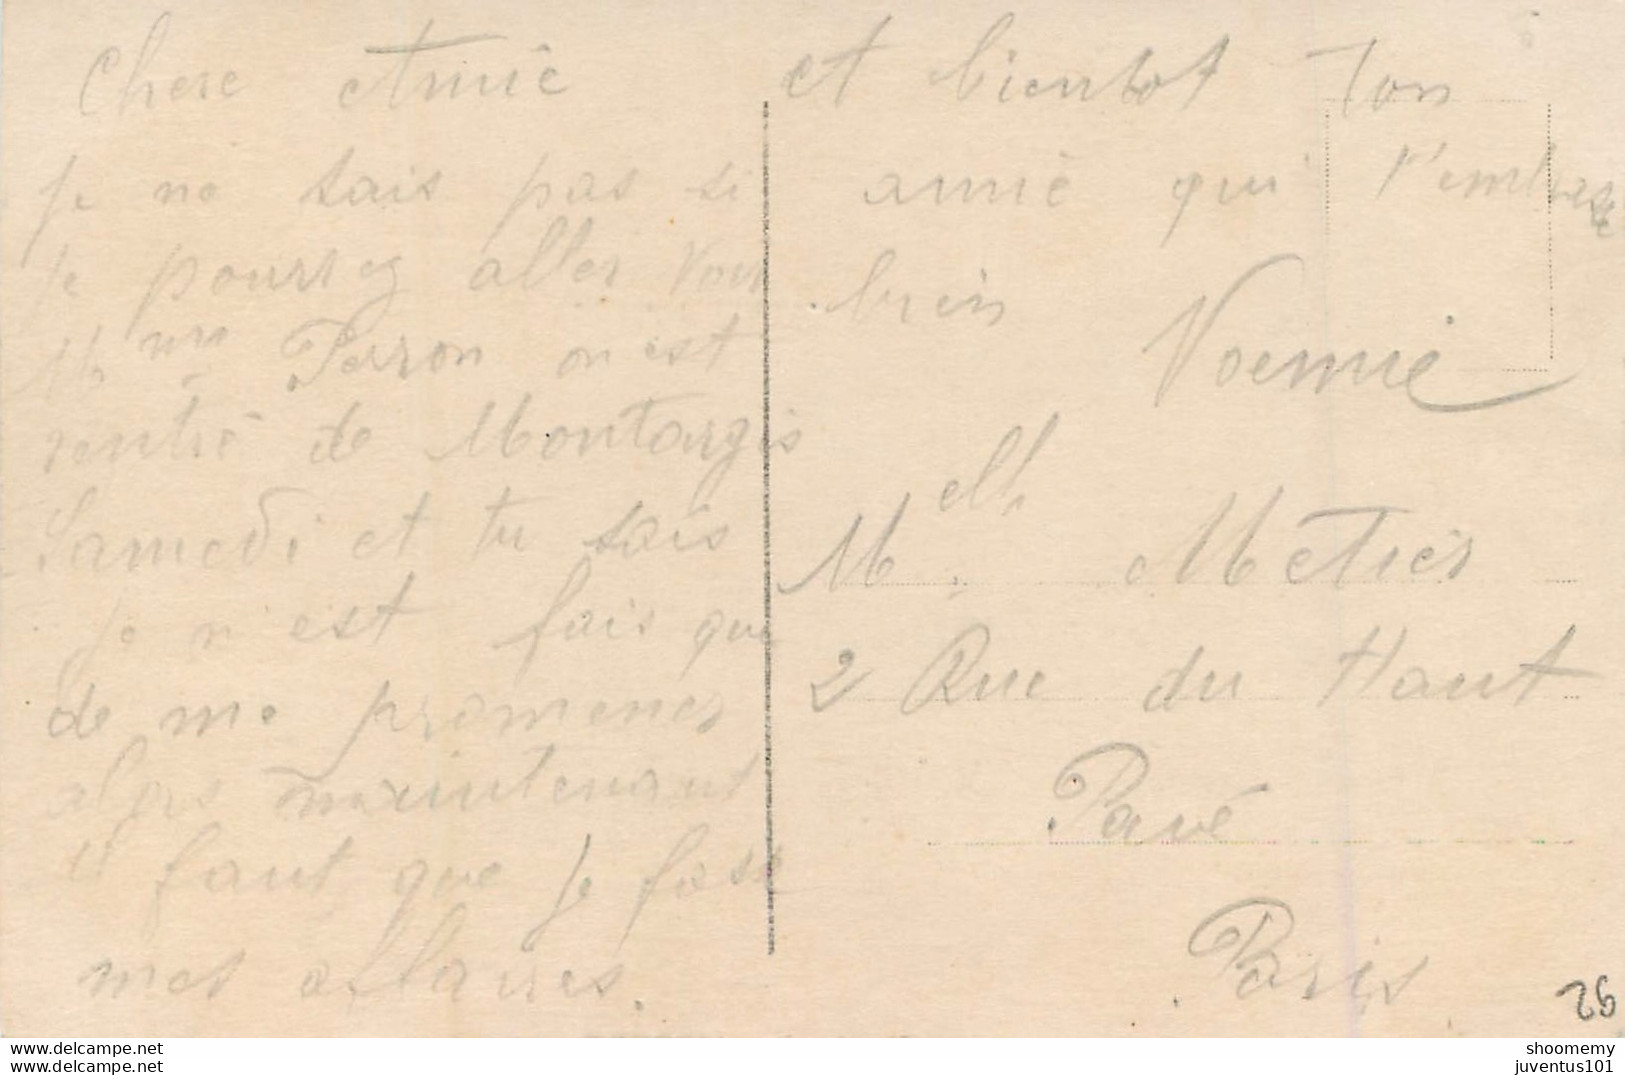 Chere Amie
je ne sais pas si
je pourrez aller voir
Mme Perron on est
rentré de Montargis
Samedi et tu sais
je n est fais que
de me promener
alors maintenant
il faut que je fasse
mes affaires.
et bientot Ton
amie qui t'embrasse
bien
Noemie
Melle Metier
2 Rue du Haut
Pavé
Paris
26
www.delcampe.net
shoomemy
juventus101